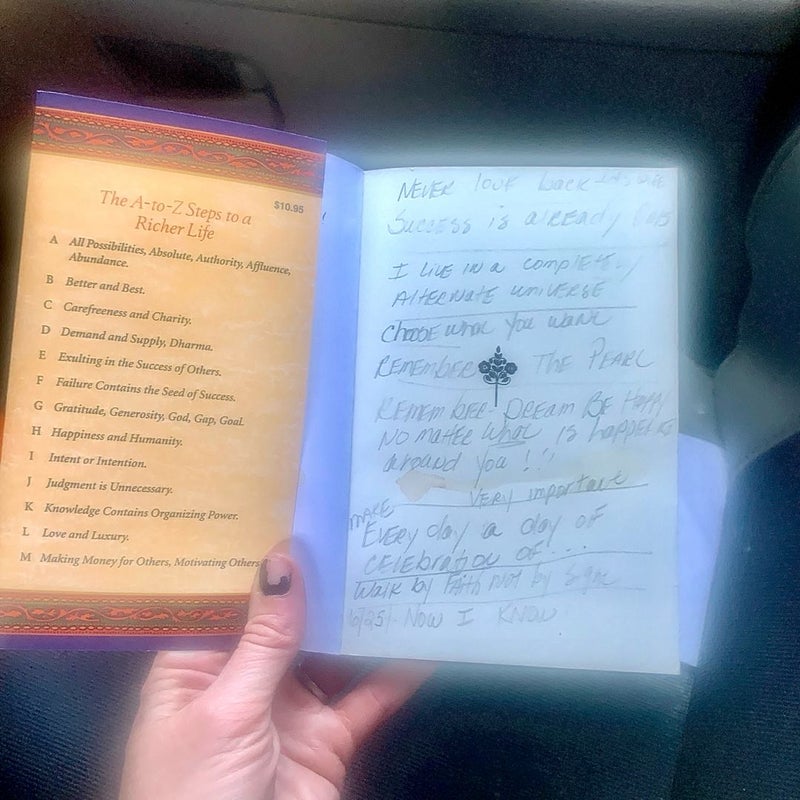 The A-to-Z Steps to a
Richer Life
$10.95
A All Possibilities, Absolute, Authority, Affluence,
Abundance.
B Better and Best.
C Carefreeness and Charity.
D Demand and Supply, Dharma.
E Exulting in the Success of Others.
F Failure Contains the Seed of Success.
G Gratitude, Generosity, God, Gap, Goal.
H Happiness and Humanity.
I Intent or Intention.
J Judgment is Unnecessary.
K Knowledge Contains Organizing Power.
L Love and Luxury.
M Making Money for Others, Motivating Others
NEVER look back
Success is already
I LIVE IN a completely
Alternate universe
Choose what you want
REMEMBER THE PEARL
REMEMBER- DREAM BE Happy
NO matter what is happening
around you !!
VERY important
MAKE
EVERY day a day of
CElebration of...
Walk by Faith Not by
Now I KNOW